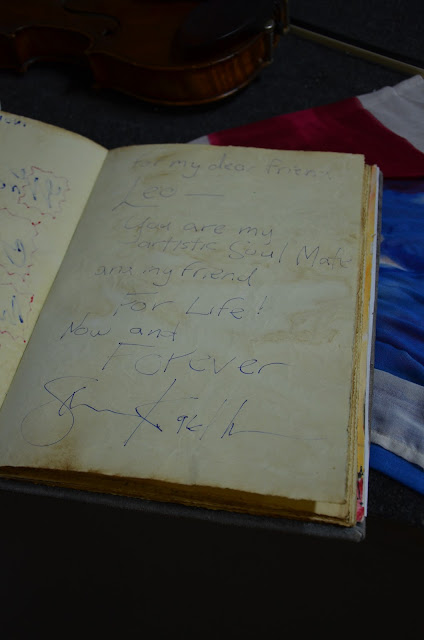 For my dear friend
Leo —
You are my
artistic Soul Mate
and my friend
For Life!
Now and
Forever